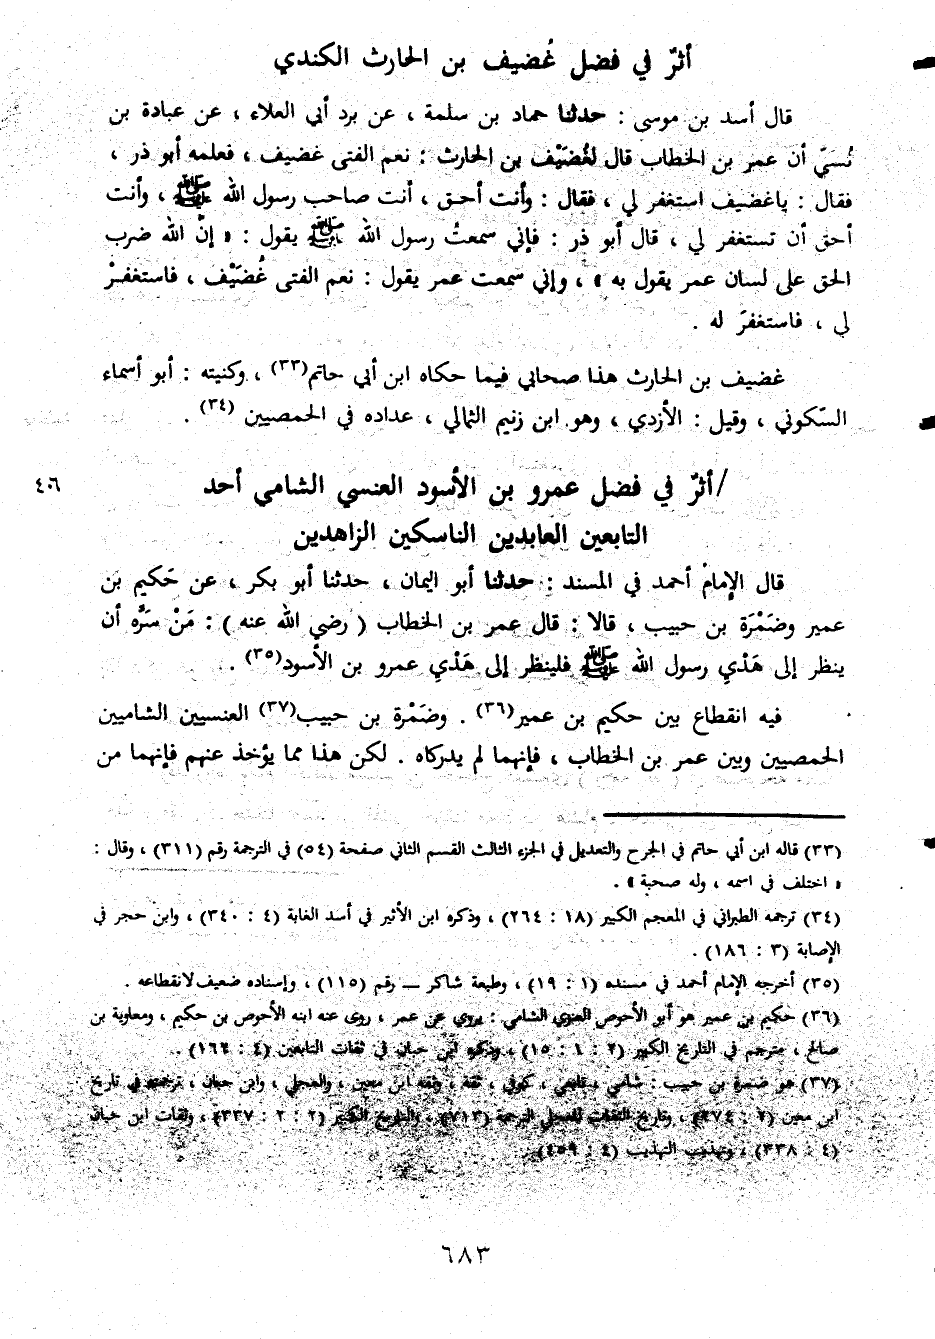 أثرٌ في فضل غُضيف بن الحارث الكندي
قال أسد بن موسى : حدثنا حماد بن سلمة ، عن برد أبي العلاء ، عن عبادة بن
نُسَيّ أن عمر بن الخطاب قال لغُضَيْف بن الحارث : نعم الفتى غضيف ، فعلمه أبو ذر ،
فقال : ياغضيف استغفر لي ، فقال : وأنت أحـق ، أنت صاحب رسول الله ﷺ ، وأنت
أحق أن تستغفر لي ، قال أبو ذر : فإني سمعتُ رسول الله ﷺ يقول : « إنَّ الله ضرب
الحق على لسان عمر يقول به » ، وإني سمعت عمر يقول : نعم الفتى غُضَيْف ، فاستغفـرْ
لي ، فاستغفرَ له .
غضيف بن الحارث هذا صحابي فيما حكاه ابن أبي حاتم(٣٣) ، وكنيته : أبو أسماء
السّكوني ، وقيل : الأزدي ، وهو ابن زنيم الثمالي ، عداده في الحمصيين (٣٤) .
/أثرٌ في فضل عمرو بن الأسود العنسي الشامي أحد
٤٠٦
التابعين العابدين الناسكين الزاهدين
قال الإمام أحمد في المسند : حدثنا أبو اليمان ، حدثنا أبو بكر ، عن حَكيم بن
عمير وضَمْرَة بن حبيب ، قالا : قال عمر بن الخطاب ( رضي الله عنه ) : مَنْ سَرَّه أن
ينظر إلى هَدْيِ رسول الله ﷺ فلينظر إلى هَدْيِ عمرو بن الأسود(٣٥) .
فيه انقطاع بين حكيم بن عمير(٣٦) . وضَمْرة بن حبيب(٣٧) العنسيين الشاميين
الحمصيين وبين عمر بن الخطاب ، فإنهما لم يدركاه . لكن هذا مما يؤخذ عنهم فإنهما من
(٣٣) قاله ابن أبي حاتم في الجرح والتعديل في الجزء الثالث القسم الثاني صفحة (٥٤) في الترجمة رقم (٣١١) ، وقال :
« اختلف في اسمه ، وله صحبة » .
(٣٤) ترجمه الطبراني في المعجم الكبير (١٨ : ٢٦٤) ، وذكره ابن الأثير في أسد الغابة (٤ : ٣٤٠) ، وابن حجر في
الإصابة (٣ : ١٨٦) .
(٣٥) أخرجه الإمام أحمد في مسنده (١ : ١٩) ، وطبعة شاكر — رقم (١١٥) ، وإسناده ضعيف لانقطاعه .
(٣٦) حكيم بن عمير هو أبو الأحوص العنوي الشامي : يروي عن عمر ، روى عنه ابنه الأحوص بن حكيم ، ومعاوية بن
صالح ، مترجم في التاريخ الكبير (٢ : ١ : ١٥) ، وذكره ابن حبان في ثقات التابعين (٤ : ١٦٢) .
(٣٧) هو ضمرة بن حبيب : شامي ، تابعي ، كوفي ، ثقة ، وثقه ابن معين ، والعجلي ، وابن حبان ، ترجمته في تاريخ
ابن معين (٢ : ٢٧٤) ، وتاريخ الثقات للعجلي الترجمة (٧١٣) ، والتاريخ الكبير (٢ : ٢ : ٣٣٧) ، وثقات ابن حبان
(٤ : ٣٣٨) ، وتهذيب التهذيب (٤ : ٤٥٩) .
٦٨٣